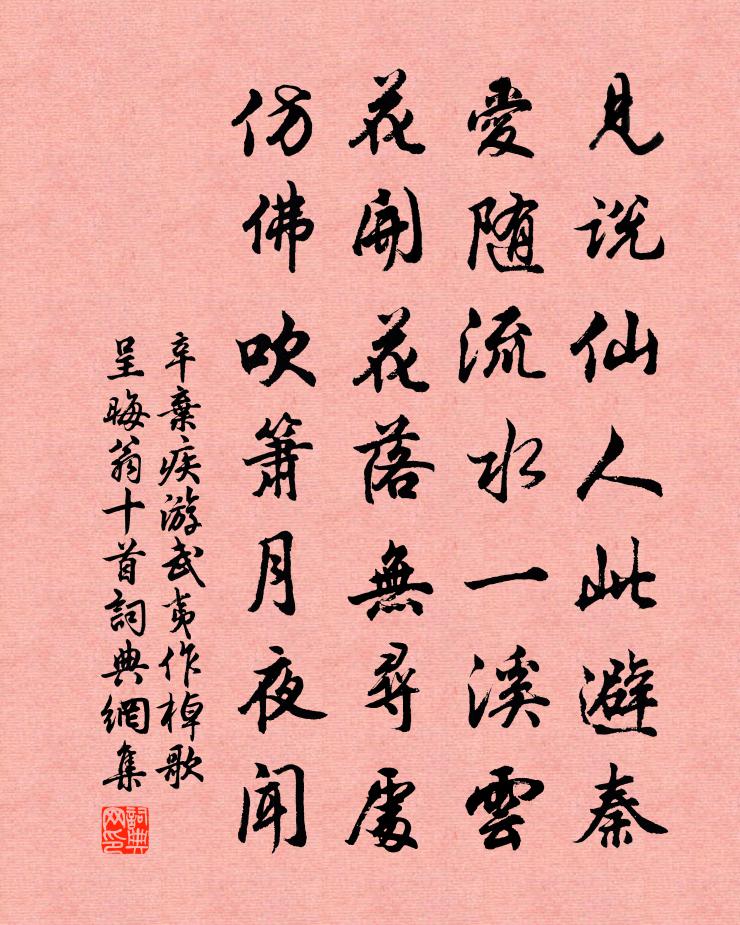 見说仙人此避秦
愛随流水一溪雲
花開花落無尋處
仿佛吹簫月夜聞
辛棄疾游武夷作棹歌
呈晦翁十首詞典網集
詞典网印